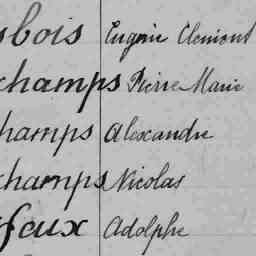 bois Eugénie Clemont
champs Pierre Marie
hamps Alexandre
champs Nicolas
faux Adolphe